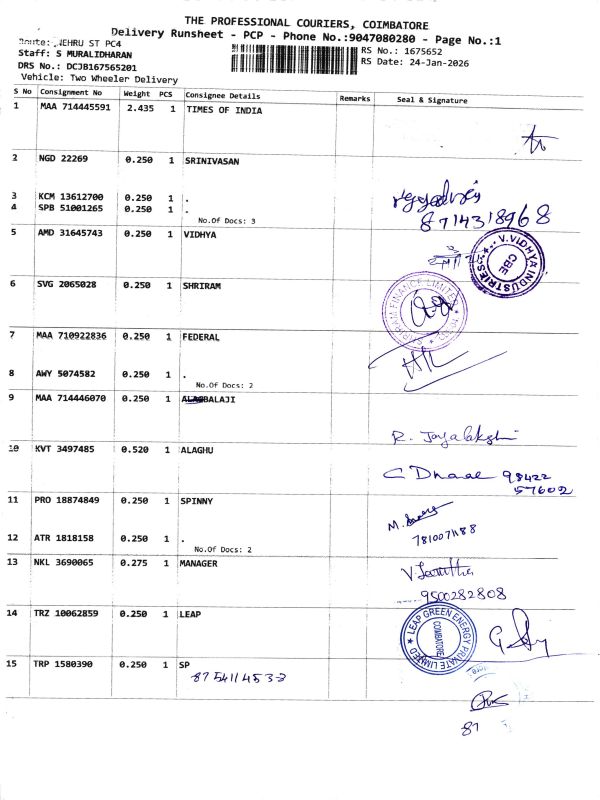 THE PROFESSIONAL COURIERS, COIMBATORE
Delivery Runsheet - PCP - Phone No.:9047080280 - Page No.:1
Route: NEHRU ST PC4
Staff: S MURALIDHARAN
DRS No.: DCJB167565201
Vehicle: Two Wheeler Delivery
RS No.: 1675652
RS Date: 24-Jan-2026
S No Consignment No Weight PCS Consignee Details Remarks Seal & Signature
1 MAA 714445591 2.435 1 TIMES OF INDIA
2 NGD 22269 0.250 1 SRINIVASAN
3 KCM 13612700 0.250 1 .
4 SPB 51001265 0.250 1 .
8714318968
No.Of Docs: 3
5 AMD 31645743 0.250 1 VIDHYA
V.VIDHYA INDUSTRIES CBE
6 SVG 2065028 0.250 1 SHRIRAM
SHRIRAM FINANCE LIMITED
7 MAA 710922836 0.250 1 FEDERAL
8 AWY 5074582 0.250 1 .
No.Of Docs: 2
9 MAA 714446070 0.250 1 BALAJI
R. Jayalakshmi
10 KVT 3497485 0.520 1 ALAGHU
98422
57602
11 PRO 18874849 0.250 1 SPINNY
12 ATR 1818158 0.250 1 .
No.Of Docs: 2
13 NKL 3690065 0.275 1 MANAGER
9500282808
14 TRZ 10062859 0.250 1 LEAP
LEAP GREEN ENERGY PRIVATE LIMITED COIMBATORE
15 TRP 1580390 0.250 1 SP
8754114533
87